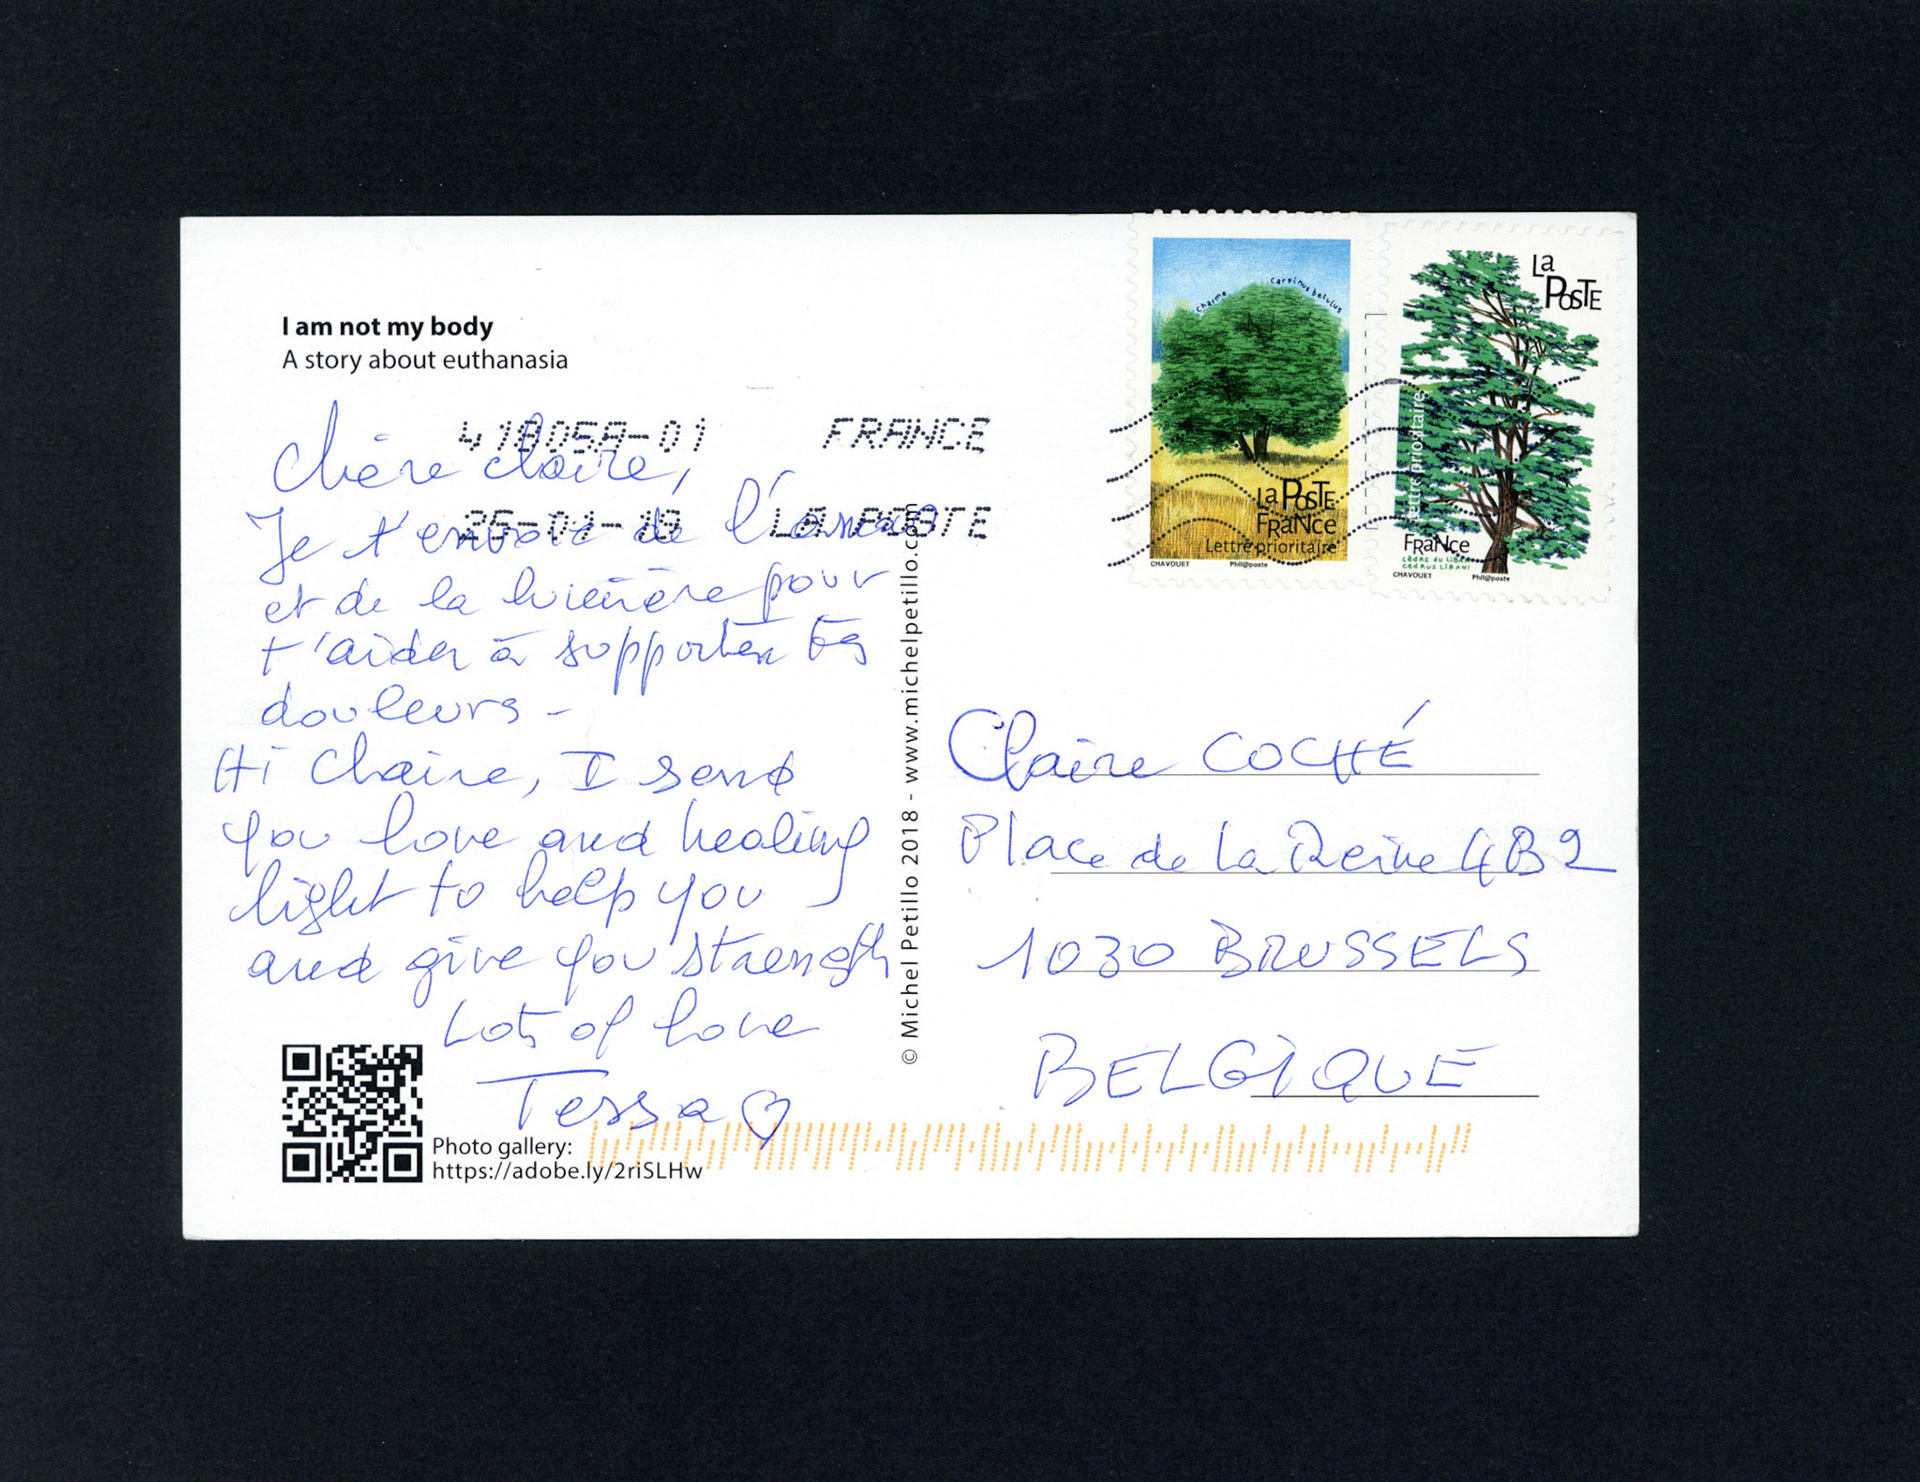 I am not my body
A story about euthanasia
41805A-01 FRANCE
25-01-19 LA POSTE
Chère Claire,
Je t'envoie de l'amour
et de la lumière pour
t'aider à supporter tes
douleurs -
Hi Claire, I send
you love and healing
light to help you
and give you strength
Lots of love
Tessa
Photo gallery:
https://adobe.ly/2riSLHw
© Michel Petillo 2018 - www.michelpetillo.com
Charme Carpinus betulus
La Poste
France
Lettre prioritaire
CHAVOUET Phil@poste
La
Poste
Lettre prioritaire
France
CÈDRE DU LIBAN
CEDRUS LIBANI
CHAVOUET Phil@poste
Claire COCHÉ
Place de la Reine 4B2
1030 BRUSSELS
BELGIQUE